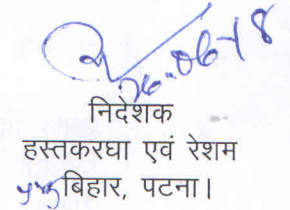 26-06-18
निदेशक
हस्तकरघा एवं रेशम
बिहार, पटना।